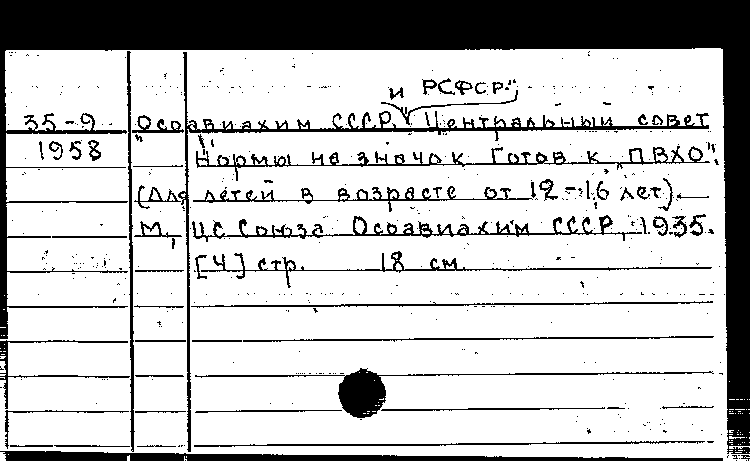 и РСФСР."
35-9 Осоавиахим СССР, Центральный совет
1958 "Нормы на значок Готов к "ПВХО".
(Для детей в возрасте от 12-16 лет).
М., ЦС Союза Осоавиахим СССР, 1935.
[4] стр. 18 см